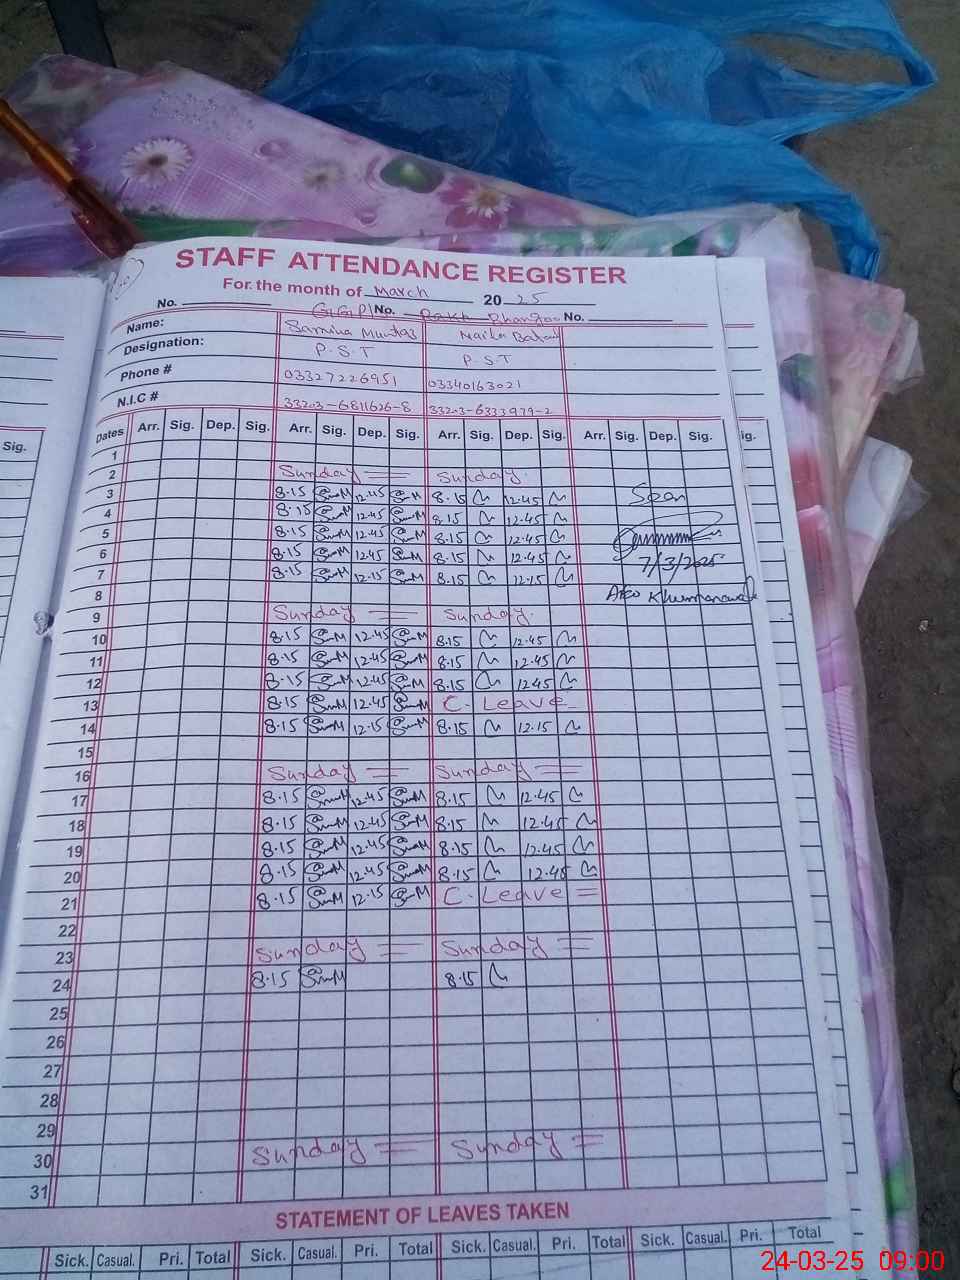 STAFF ATTENDANCE REGISTER
For the month of March 2025
No. G.G.P/No. Rakh No.
Name: Samina Mumtaz
Designation: P.S.T P.S.T
Phone # 03327226951 03340163021
N.I.C # 33203-6811626-8 33203-6333979-2
Sig. Dates Arr. Sig. Dep. Sig. Arr. Sig. Dep. Sig. Arr. Sig. Dep. Sig. Arr. Sig. Dep. Sig. ig.
1
2 Sunday Sunday
3 8.15 12.45 8.15 12.45 Seen
4 8.15 12.45 8.15 12.45
5 8.15 12.45 8.15 12.45
6 8.15 12.45 8.15 12.45 7/3/2025
7 8.15 12.15 8.15 12.15
8 AEO
9 Sunday Sunday
10 8.15 12.45 8.15 12.45
11 8.15 12.45 8.15 12.45
12 8.15 12.45 8.15 12.45
13 8.15 12.45 C. Leave
14 8.15 12.15 8.15 12.15
15
16 Sunday Sunday
17 8.15 12.45 8.15 12.45
18 8.15 12.45 8.15 12.45
19 8.15 12.45 8.15 12.45
20 8.15 12.45 8.15 12.45
21 8.15 12.15 C. Leave
22
23 Sunday Sunday
24 8.15 8.15
25
26
27
28
29
30 Sunday Sunday
31
STATEMENT OF LEAVES TAKEN
Sick. Casual. Pri. Total Sick. Casual. Pri. Total Sick. Casual. Pri. Total Sick. Casual. Pri. Total
24-03-25 09:00